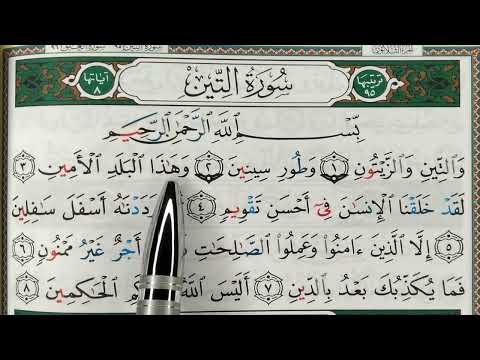 ترتيبها ٩٥ سُورَةُ التِّينِ آياتها ٨
بِسْمِ ٱللَّهِ ٱلرَّحْمَٰنِ ٱلرَّحِيمِ
وَٱلتِّينِ وَٱلزَّيْتُونِ ١ وَطُورِ سِينِينَ ٢ وَهَٰذَا ٱلْبَلَدِ ٱلْأَمِينِ ٣
لَقَدْ خَلَقْنَا ٱلْإِنسَٰنَ فِىٓ أَحْسَنِ تَقْوِيمٍ ٤ رَدَدْنَٰهُ أَسْفَلَ سَٰفِلِينَ
٥ إِلَّا ٱلَّذِينَ ءَامَنُوا۟ وَعَمِلُوا۟ ٱلصَّٰلِحَٰتِ أَجْرٌ غَيْرُ مَمْنُونٍ ٦
فَمَا يُكَذِّبُكَ بَعْدُ بِٱلدِّينِ ٧ أَلَيْسَ ٱللَّهُ كَمِ ٱلْحَٰكِمِينَ ٨